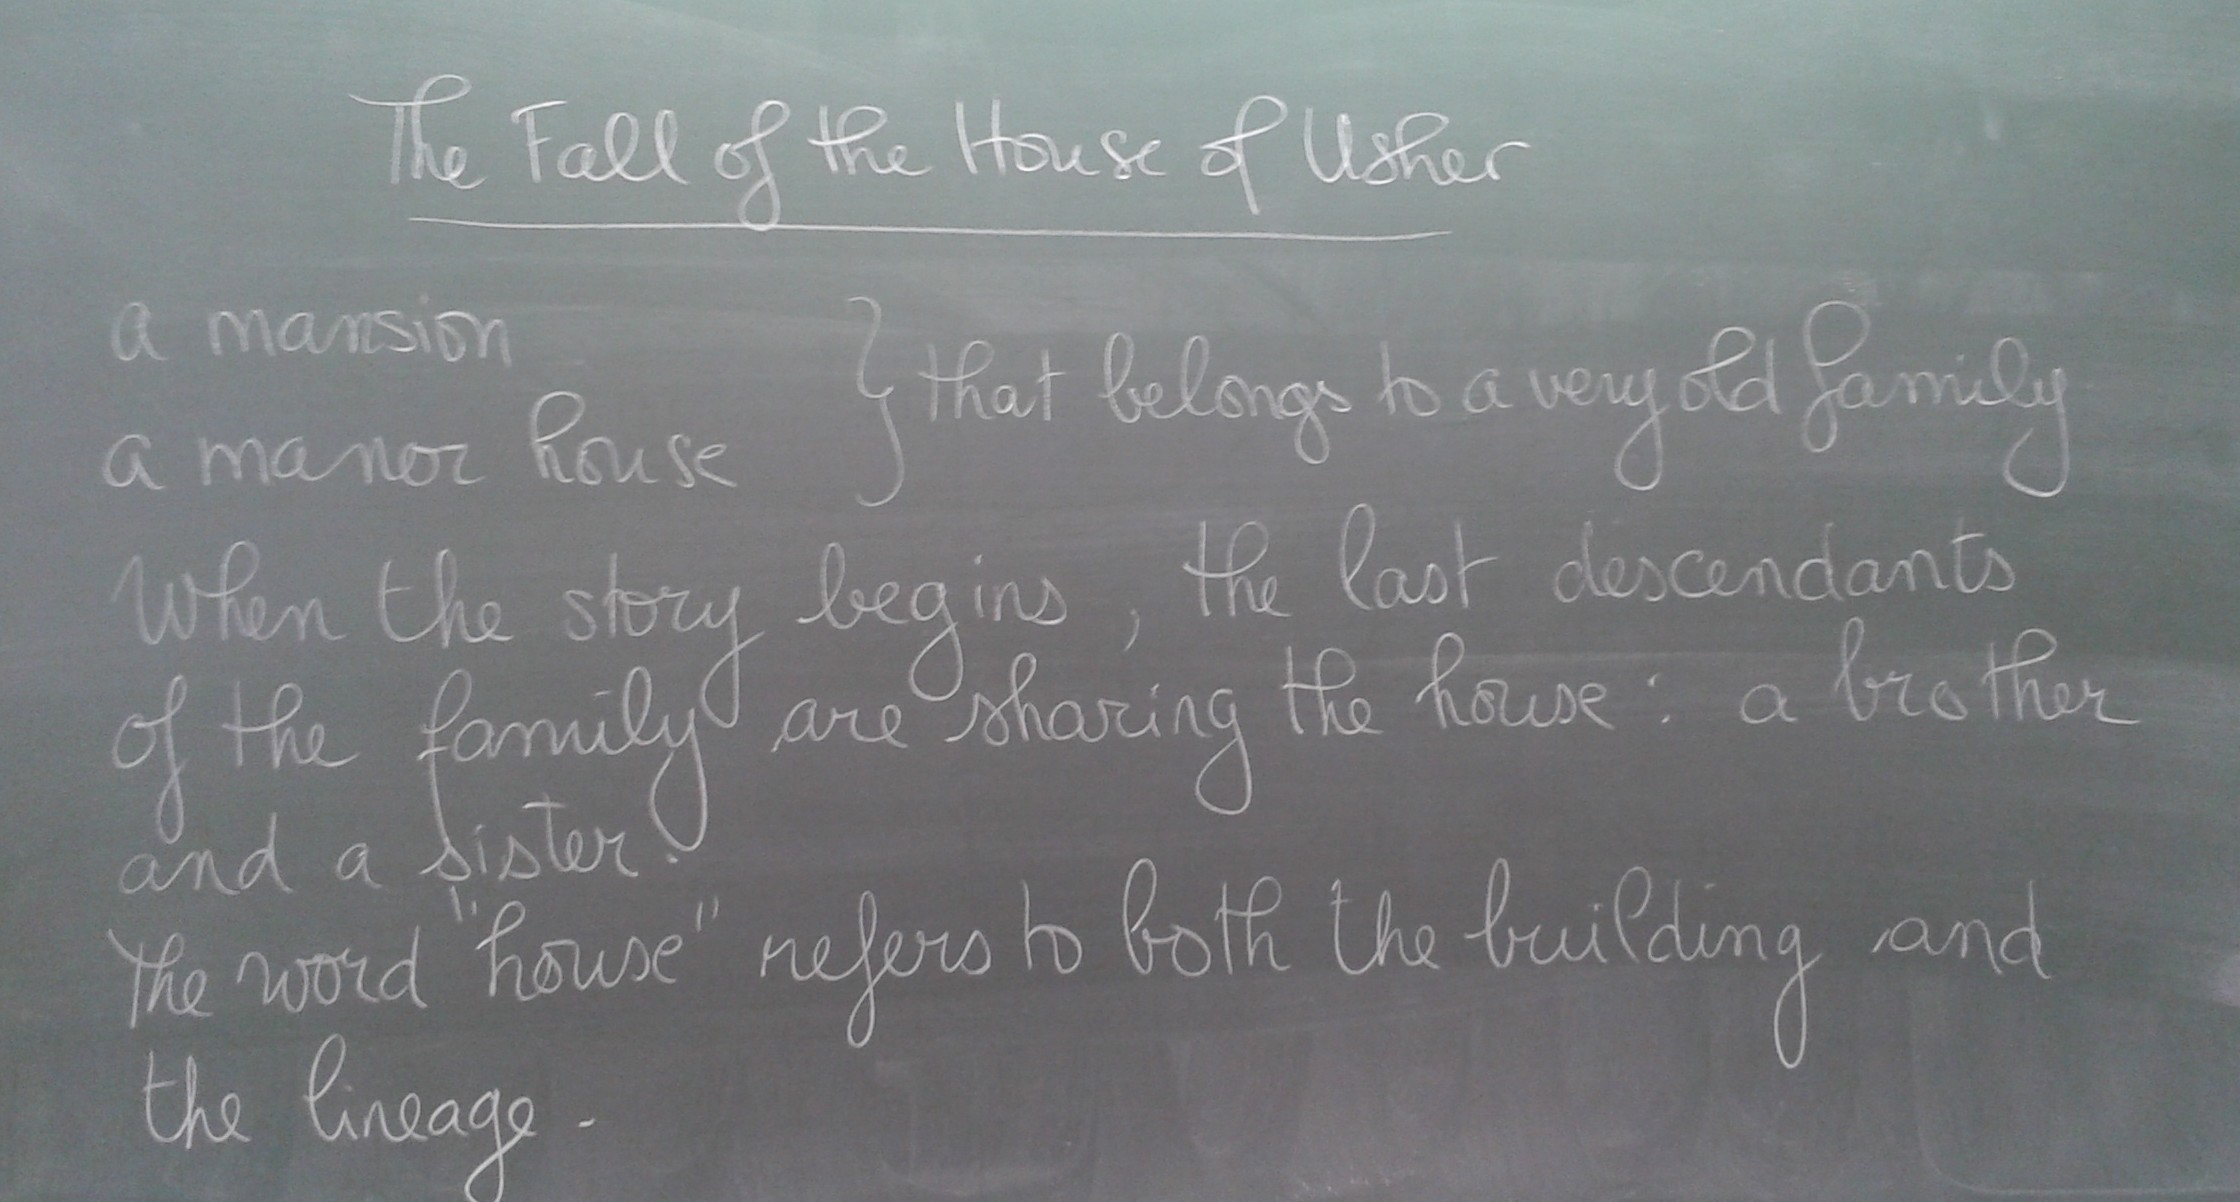 The Fall of the House of Usher
a mansion
a manor house
} that belongs to a very old family
When the story begins, the last descendants
of the family are sharing the house : a brother
and a sister.
The word "house" refers to both the building and
the lineage.